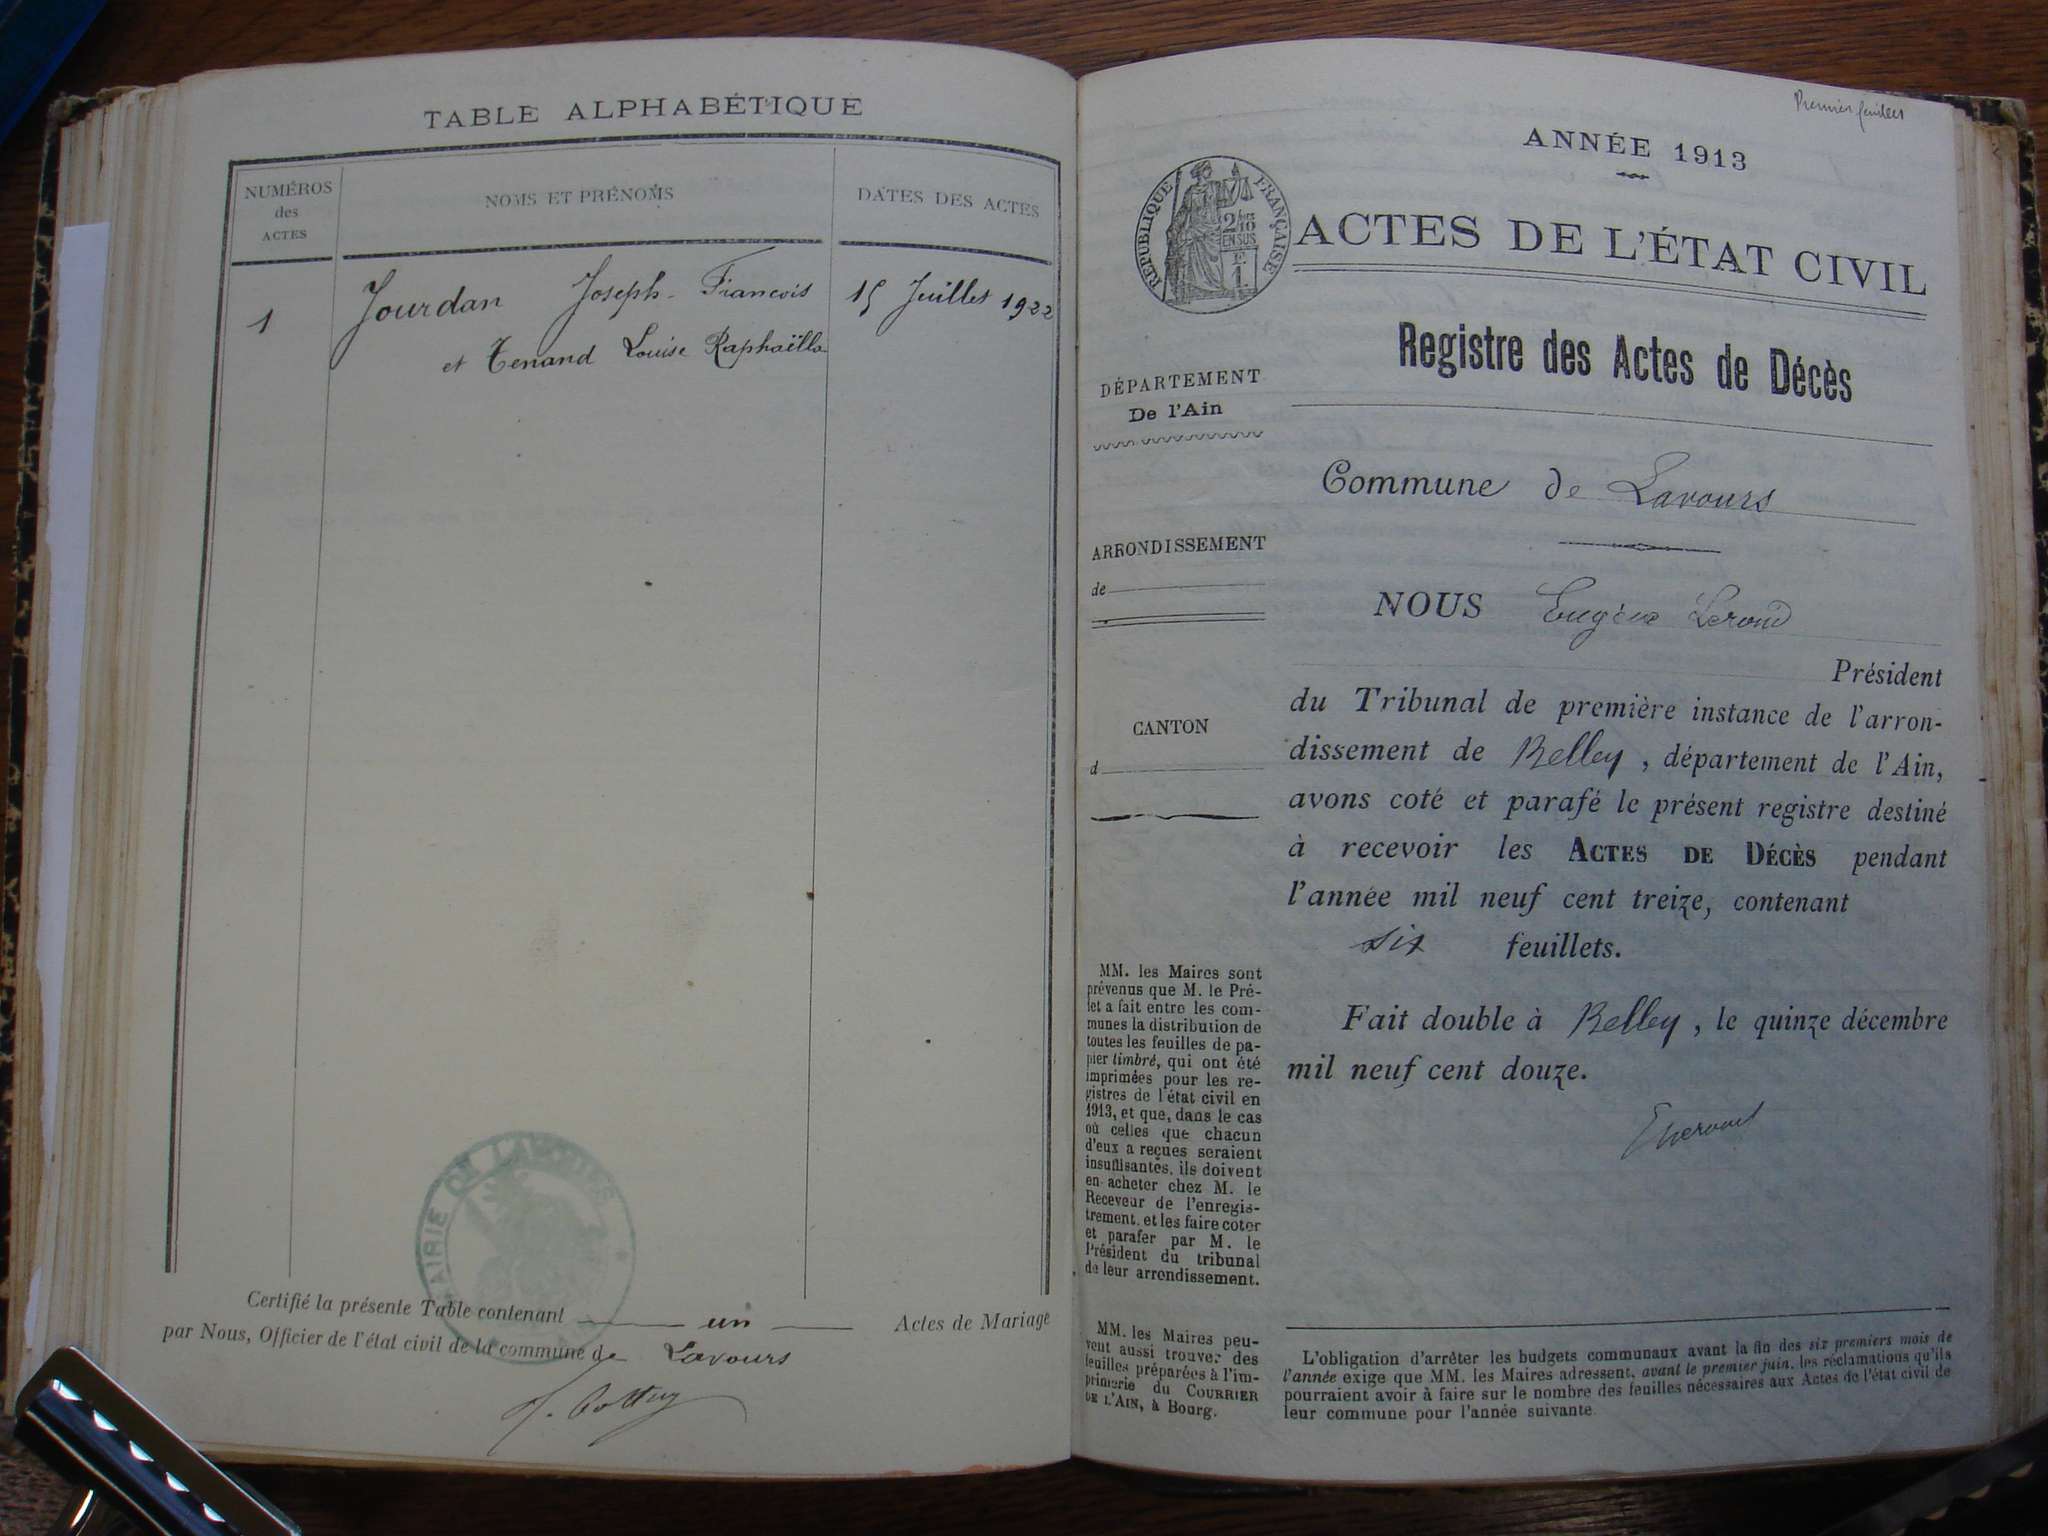 TABLE ALPHABÉTIQUE
NUMÉROS
des
ACTES
NOMS ET PRÉNOMS
DATES DES ACTES
1 Jourdan Joseph-François 15 Juillet 1922
et Tenand Louise Raphaëlla
MAIRIE DE LAVOURS
Certifié la présente Table contenant un Actes de Mariage
par Nous, Officier de l'état civil de la commune de Lavours
Premier feuillet
ANNÉE 1913
RÉPUBLIQUE FRANÇAISE
2/10
EN SUS
ACTES DE L'ÉTAT CIVIL
Registre des Actes de Décès
DÉPARTEMENT
De l'Ain
ARRONDISSEMENT
de
CANTON
d
MM. les Maires sont
prévenus que M. le Pré-
fet a fait entre les com-
munes la distribution de
toutes les feuilles de pa-
pier timbré, qui ont été
imprimées pour les re-
gistres de l'état civil en
1913, et que, dans le cas
où celles que chacun
d'eux a reçues seraient
insuffisantes, ils doivent
en acheter chez M. le
Receveur de l'enregis-
trement, et les faire coter
et parafer par M. le
Président du tribunal
de leur arrondissement.
MM. les Maires peu-
vent aussi trouver des
feuilles préparées à l'im-
primerie du COURRIER
DE L'AIN, à Bourg.
Commune de Lavours
NOUS Eugène
Président
du Tribunal de première instance de l'arron-
dissement de Belley, département de l'Ain,
avons coté et parafé le présent registre destiné
à recevoir les ACTES DE DÉCÈS pendant
l'année mil neuf cent treize, contenant
six feuillets.
Fait double à Belley, le quinze décembre
mil neuf cent douze.
L'obligation d'arrêter les budgets communaux avant la fin des six premiers mois de
l'année exige que MM. les Maires adressent, avant le premier juin, les réclamations qu'ils
pourraient avoir à faire sur le nombre des feuilles nécessaires aux Actes de l'état civil de
leur commune pour l'année suivante.